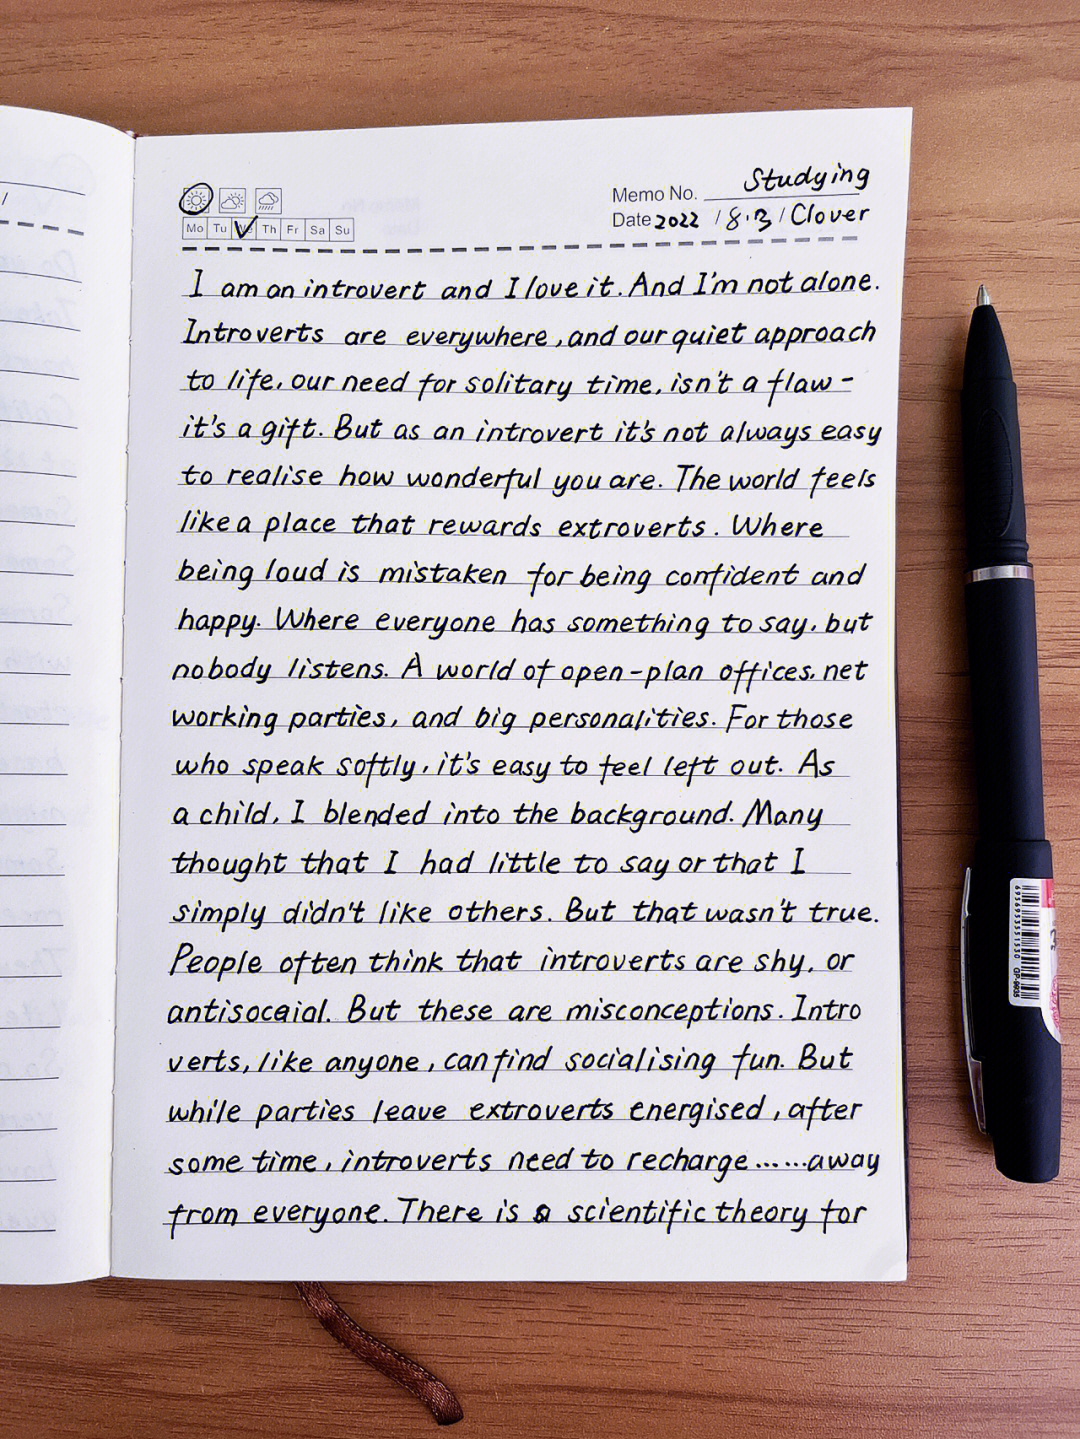 Memo No. Studying
Mo Tu We Th Fr Sa Su
Date 2022 / 8.3 / Clover
I am an introvert and I love it. And I'm not alone.
Introverts are everywhere, and our quiet approach
to life, our need for solitary time, isn't a flaw -
it's a gift. But as an introvert it's not always easy
to realise how wonderful you are. The world feels
like a place that rewards extroverts. Where
being loud is mistaken for being confident and
happy. Where everyone has something to say, but
nobody listens. A world of open-plan offices, net
working parties, and big personalities. For those
who speak softly, it's easy to feel left out. As
a child, I blended into the background. Many
thought that I had little to say or that I
simply didn't like others. But that wasn't true.
People often think that introverts are shy, or
antisocaial. But these are misconceptions. Intro
verts, like anyone, can find socialising fun. But
while parties leave extroverts energised, after
some time, introverts need to recharge......away
from everyone. There is a scientific theory for
6956953551530
GP-9935